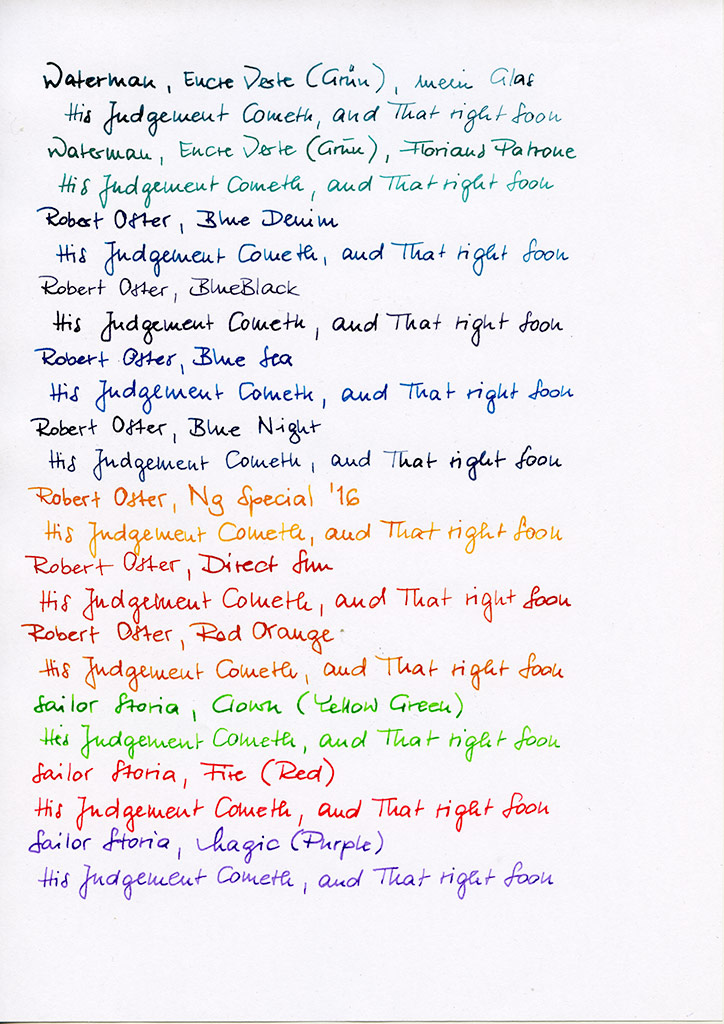 Waterman, Encre Verte (Grün), mein Glas
His Judgement Cometh, and That right Soon
Waterman, Encre Verte (Grün), Florians Patrone
His Judgement Cometh, and That right Soon
Robert Oster, Blue Denim
His Judgement Cometh, and That right Soon
Robert Oster, BlueBlack
His Judgement Cometh, and That right Soon
Robert Oster, Blue Sea
His Judgement Cometh, and That right Soon
Robert Oster, Blue Night
His Judgement Cometh, and That right Soon
Robert Oster, Ng Special '16
His Judgement Cometh, and That right Soon
Robert Oster, Direct Sun
His Judgement Cometh, and That right Soon
Robert Oster, Red Orange
His Judgement Cometh, and That right Soon
Sailor Storia, Clown (Yellow Green)
His Judgement Cometh, and That right Soon
Sailor Storia, Fire (Red)
His Judgement Cometh, and That right Soon
Sailor Storia, Magic (Purple)
His Judgement Cometh, and That right Soon